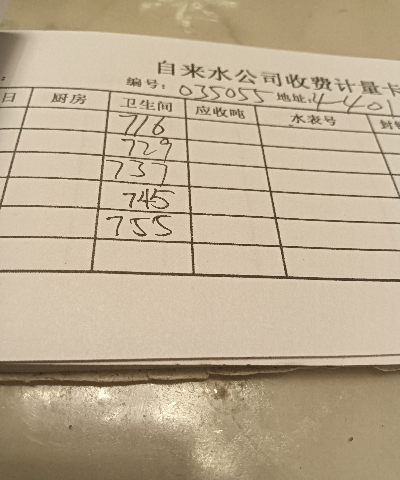 自来水公司收费计量卡
编号: 035055 地址: 4-401
日 厨房 卫生间 应收吨 水表号
716
729
737
745
755